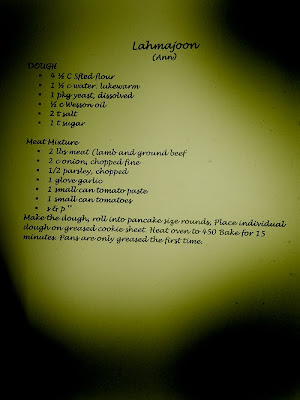 Lahmajoon
(Ann)
DOUGH
• 4 ½ C Sfted flour
• 1 ½ c water. lukewarm
• 1 pkg yeast, dissolved
• ½ c Wesson oil
• 2 t salt
• 1 t sugar
Meat Mixture
• 2 lbs meat (lamb and ground beef
• 2 c onion, chopped fine
• 1/2 parsley, chopped
• 1 glove garlic
• 1 small can tomato paste
• 1 small can tomatoes
• s & p "
Make the dough, roll into pancake size rounds, Place individual
dough on greased cookie sheet. Heat oven to 450 Bake for 15
minutes. Pans are only greased the first time.